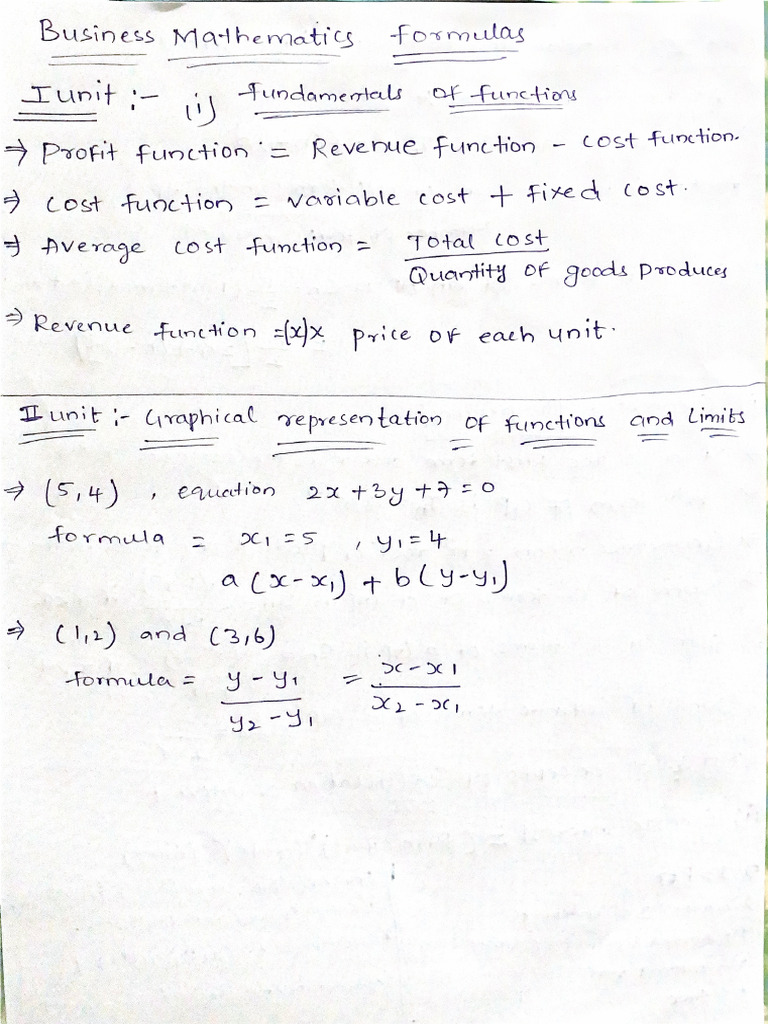 Business Mathematics formulas
I unit :- (i) fundamentals of functions
⇒ Profit function = Revenue function - cost function.
⇒ cost function = variable cost + fixed cost.
⇒ Average cost function = Total cost / Quantity of goods produces
⇒ Revenue function =(x)x price of each unit.
II unit :- Graphical representation of functions and Limits
⇒ (5,4) , equation 2x +3y +7 = 0
formula = x₁ = 5 , y₁ = 4
a (x-x₁) + b (y-y₁)
⇒ (1,2) and (3,6)
formula = y - y₁ / y₂ - y₁ = x - x₁ / x₂ - x₁